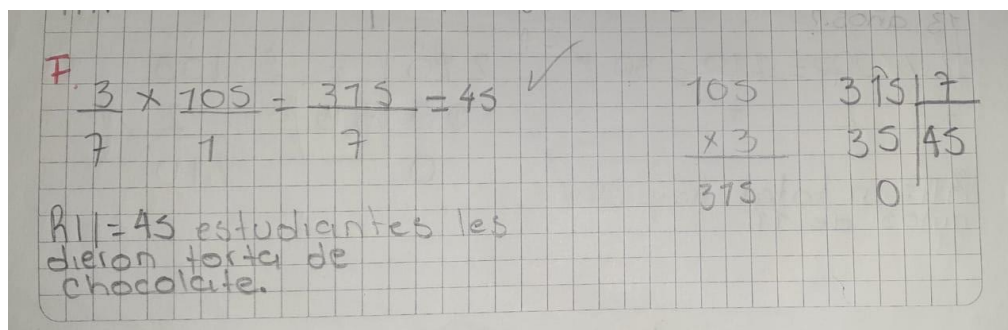 F.
3/7 × 105/1 = 315/7 = 45 ✓
105
× 3
315
315 | 7
35 | 45
0
R// = 45 estudiantes les
dieron torta de
chocolate.